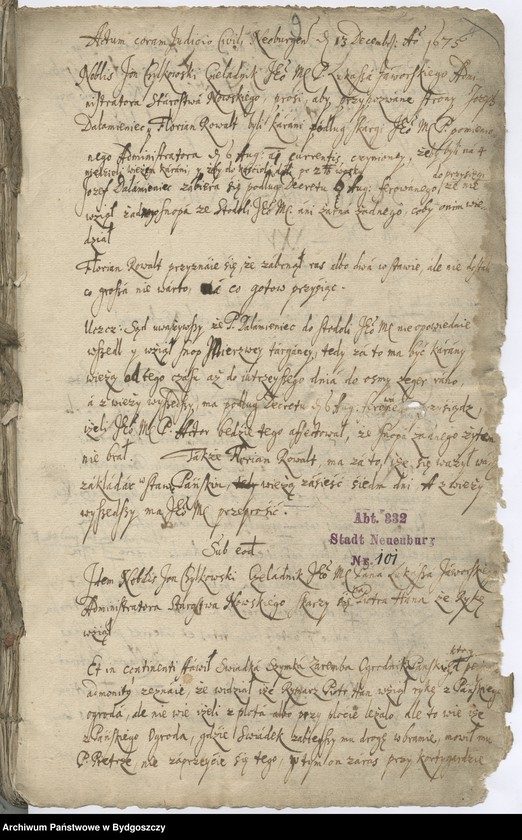 9
Actum coram Judicio Civili Neoburgen D 13 Decembr: Ao 1675
Noblis Jon Czylkowski Czeladnik Jeo Mc P. Lukasza Jaworskiego Admi-
nistratora Starostwa Nowskiego, prosi, aby przypozwane strony Jozeph
Dalamieniec y Florian Rowalt byli karani podlug skargi Jeo Mc P. pomienio-
nego Administratora D 6 Aug: currentis, czynioney, że byli na 4
niedzieli wieżą karani, y aby do kosciola po 2
Jozef Dalamieniec zabiera się podlug Decretu Aug: ferowanego do przysięgi że nie
wziął żadnego snopa ze stodoli Jeo Mc: ani żadnego, coby o nim wie
dział
Florian Rowalt przyznaie się, że zabrnął raz albo dwa w stawie, ale nie dostał
co grosza nie warto, na co gotow przysiąc.
Urzr: Sąd uważywszy, że P. Dalamieniec do stodoli Jeo Mc nie opowiednie
wszedł y wziął snop Mierzwey targaney, tedy za to ma być karany
wieżą od tego czasu aż do jutrzyszego dnia do osmy zeger rano,
a z wieży wyszedszy, ma podlug Decretu D 6 Aug:
ieżeli Jeo Mc P. Actor będzie tego affectował, że snopa żytem
nie brał. Także Florian Rowalt, ma za to, iże się ważył
zakładać staw Pański, wieżą zasieść siedm dni A z wieży
wyszedszy ma Jeo Mc przeprosić.
Abt. 332
Stadt Neuenburg
Nr. 101
Sub eod
Item Noblis Jon Czylkowski Czeladnik Jeo Mc Pana Lukasza Jaworskiego
Administratora Starostwa Nowskiego skarzy na Piotra Hana że Rybę
wziął
Et in continenti stawił Swiadka Szymka Zaremba Ogrodnik Pański, ktory
admonity zeznaie, że widział iże Piotr Han wziął rybę z Pańskiego
ogroda, ale nie wie ieżeli z plota albo przy plocie leżało. Ale to wie iże
z Pańskiego Ogroda, gdzie Swiadek zabieghszy mu drogę w bramie, mowił mu
P. Pietrze, nie zaprzeycie się tego, potym on zaraz przy kordygardzie
Archiwum Państwowe w Bydgoszczy